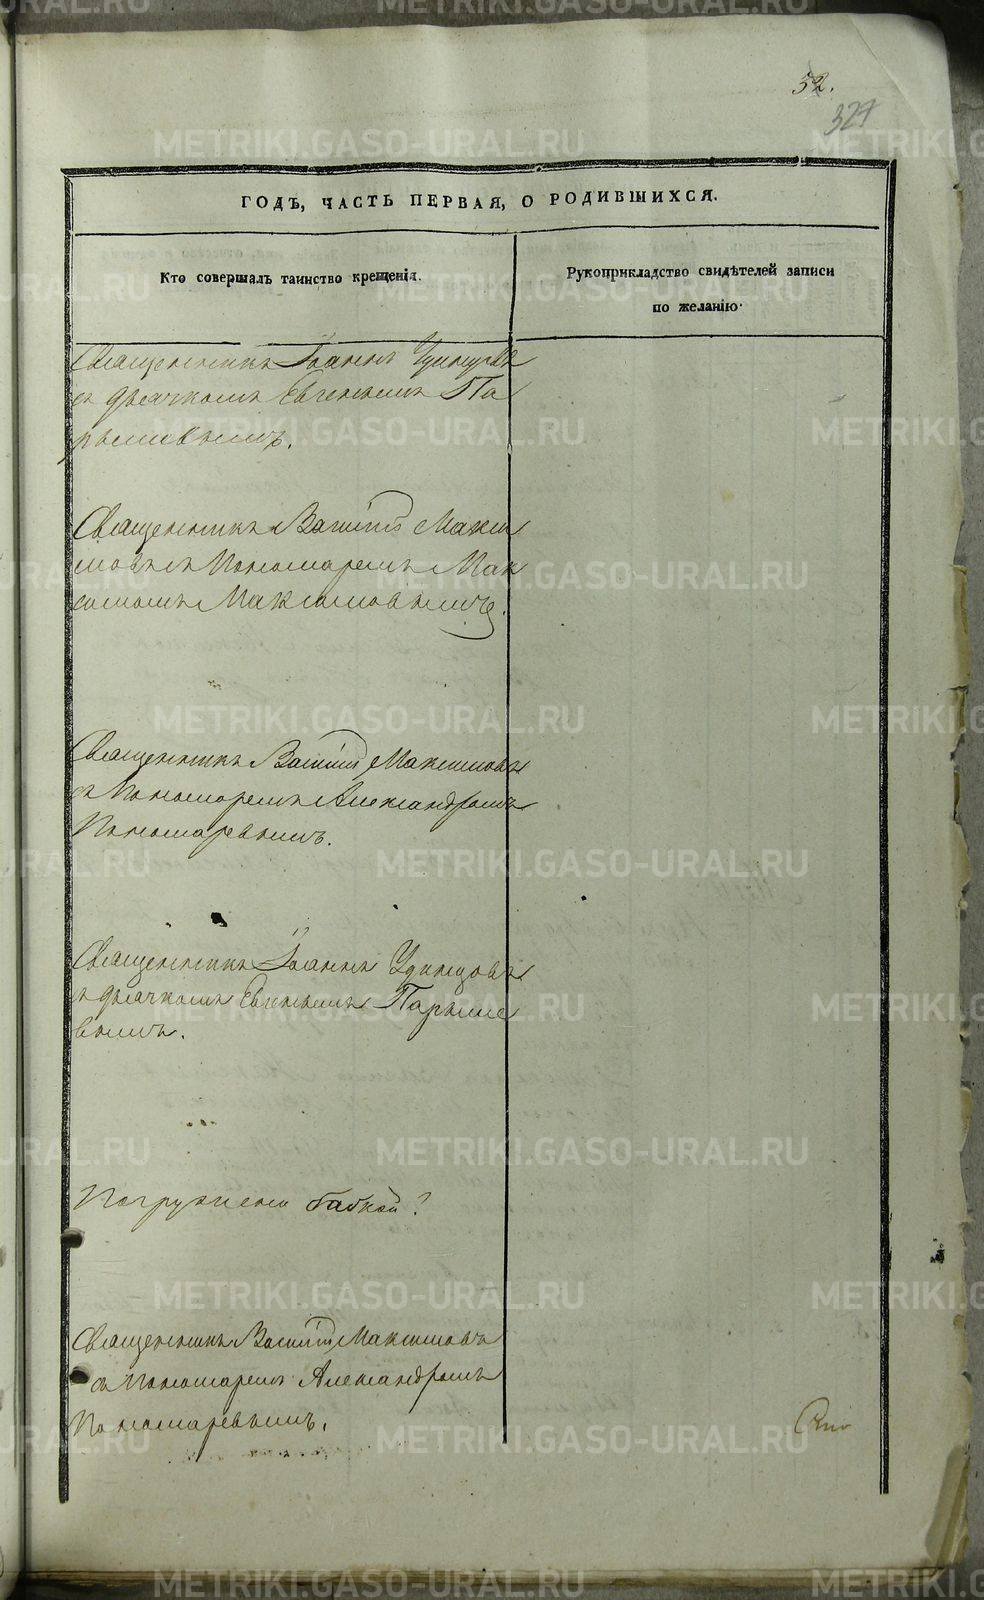 32.
327
ГОДЪ, ЧАСТЬ ПЕРВАЯ, О РОДИВШИХСЯ.
Кто совершалъ таинство крещенія.
Рукоприкладство свидѣтелей записи
по желанію.
Священникъ Іоаннъ Удинцовъ
съ дьячкомъ Евгеньемъ Па
рышевымъ.
Священникъ Василій Макси
мовъ съ Пономаремъ Мак
симомъ Максимовымъ.
Священникъ Василій Максимовъ
съ Пономаремъ Александромъ
Пономаревымъ.
Священникъ Іоаннъ Удинцовъ
съ дьячкомъ Евгеньемъ Парыше
вымъ.
Погружено бабкой?
Священникъ Василій Максимовъ
съ Пономаремъ Александромъ
Пономаревымъ.
METRIKI.GASO-URAL.RU